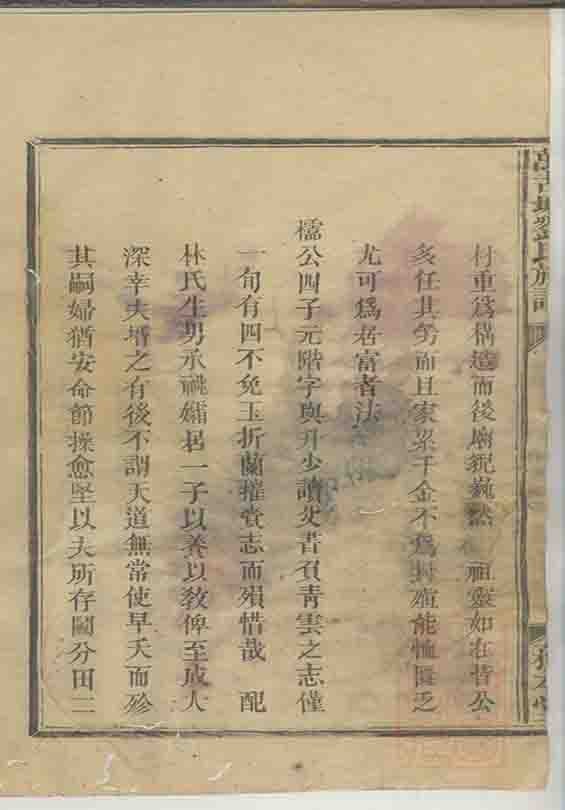 劉氏族譜
材重爲構造而後廟貌巍然 祖靈如在皆公
多任其勞而且家累千金不爲封殖能恤匱乏
尤可爲居富者法
儒公四子元階字與升少讀父書有青雲之志僅
一旬有四不免玉折蘭摧賫志而殞惜哉 配
林氏生男承祧孀居一子以養以敎俾至成人
深幸夫壻之有後不謂天道無常使早夭而殄
其嗣婦猶安命節操愈堅以夫所存鬮分田二